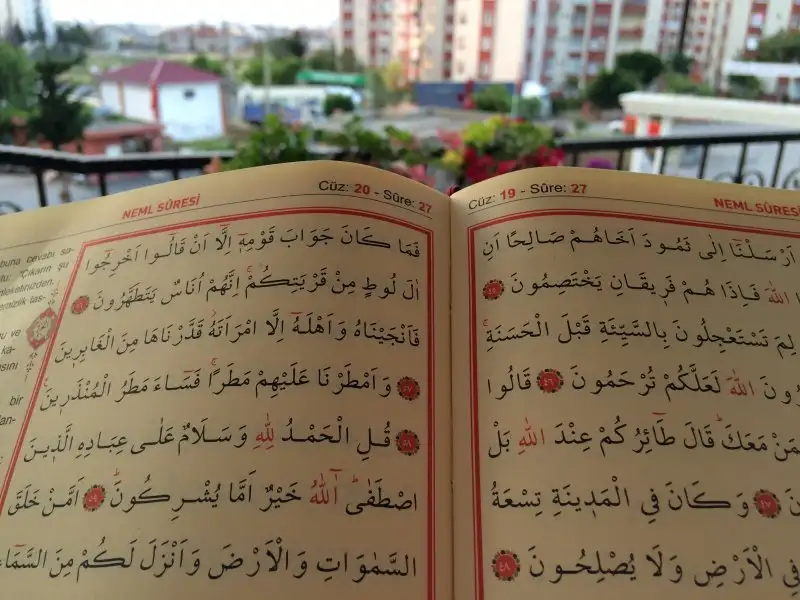 Cüz: 19 - Sûre: 27
NEML SÛRESİ
اَرْسَلْنَٓا اِلٰى ثَمُودَ اَخَاهُمْ صَالِحًا اَنِ
اللّٰهَ فَاِذَا هُمْ فَر۪يقَانِ يَخْتَصِمُونَ ﴿٤٥﴾
لِمَ تَسْتَعْجِلُونَ بِالسَّيِّئَةِ قَبْلَ الْحَسَنَةِۚ
اللّٰهَ لَعَلَّكُمْ تُرْحَمُونَ ﴿٤٦﴾ قَالُوا
مَعَكَۜ قَالَ طَٓائِرُكُمْ عِنْدَ اللّٰهِ بَلْ
﴿٤٧﴾ وَكَانَ فِي الْمَد۪ينَةِ تِسْعَةُ
فِي الْاَرْضِ وَلَا يُصْلِحُونَ ﴿٤٨﴾
NEML SÛRESİ
Cüz: 20 - Sûre: 27
فَمَا كَانَ جَوَابَ قَوْمِه۪ٓ اِلَّٓا اَنْ قَالُٓوا اَخْرِجُٓوا
اٰلَ لُوطٍ مِنْ قَرْيَتِكُمْۚ اِنَّهُمْ اُنَاسٌ يَتَطَهَّرُونَ
فَاَنْجَيْنَاهُ وَاَهْلَهُٓ اِلَّا امْرَاَتَهُۘ قَدَّرْنَاهَا مِنَ الْغَابِر۪ينَ
﴿٥٧﴾ وَاَمْطَرْنَا عَلَيْهِمْ مَطَرًاۚ فَسَٓاءَ مَطَرُ الْمُنْذَر۪ينَ
﴿٥٨﴾ قُلِ الْحَمْدُ لِلّٰهِ وَسَلَامٌ عَلٰى عِبَادِهِ الَّذ۪ينَ
اصْطَفٰىۜ آٰللّٰهُ خَيْرٌ اَمَّا يُشْرِكُونَۜ ﴿٥٩﴾ اَمَّنْ خَلَقَ
السَّمٰوَاتِ وَالْاَرْضَ وَاَنْزَلَ لَكُمْ مِنَ السَّمَٓاءِ
buna cevabı sa-
"Çıkarın şu
bir